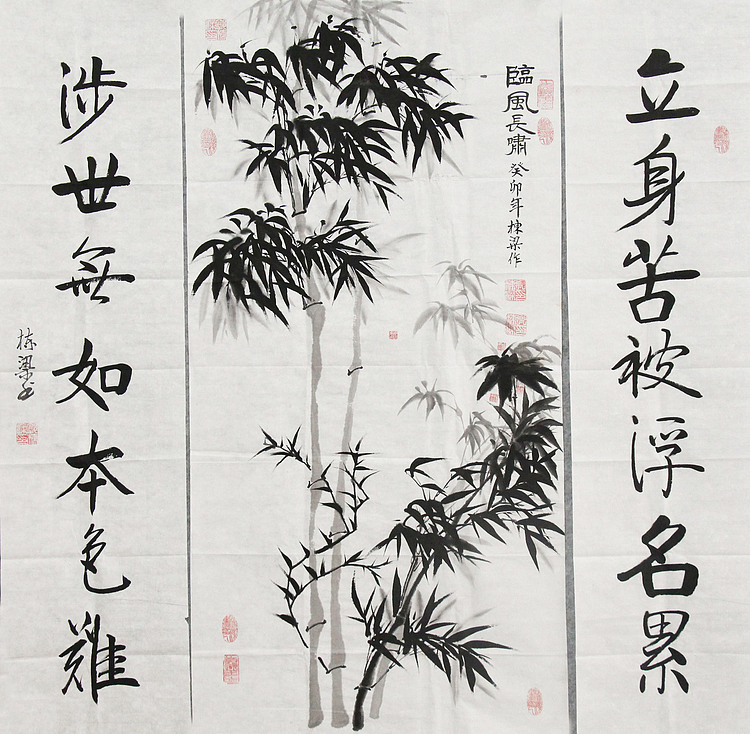 立身苦被浮名累
臨風長嘯
癸卯年棟梁作
涉世無如本色難
栋梁书